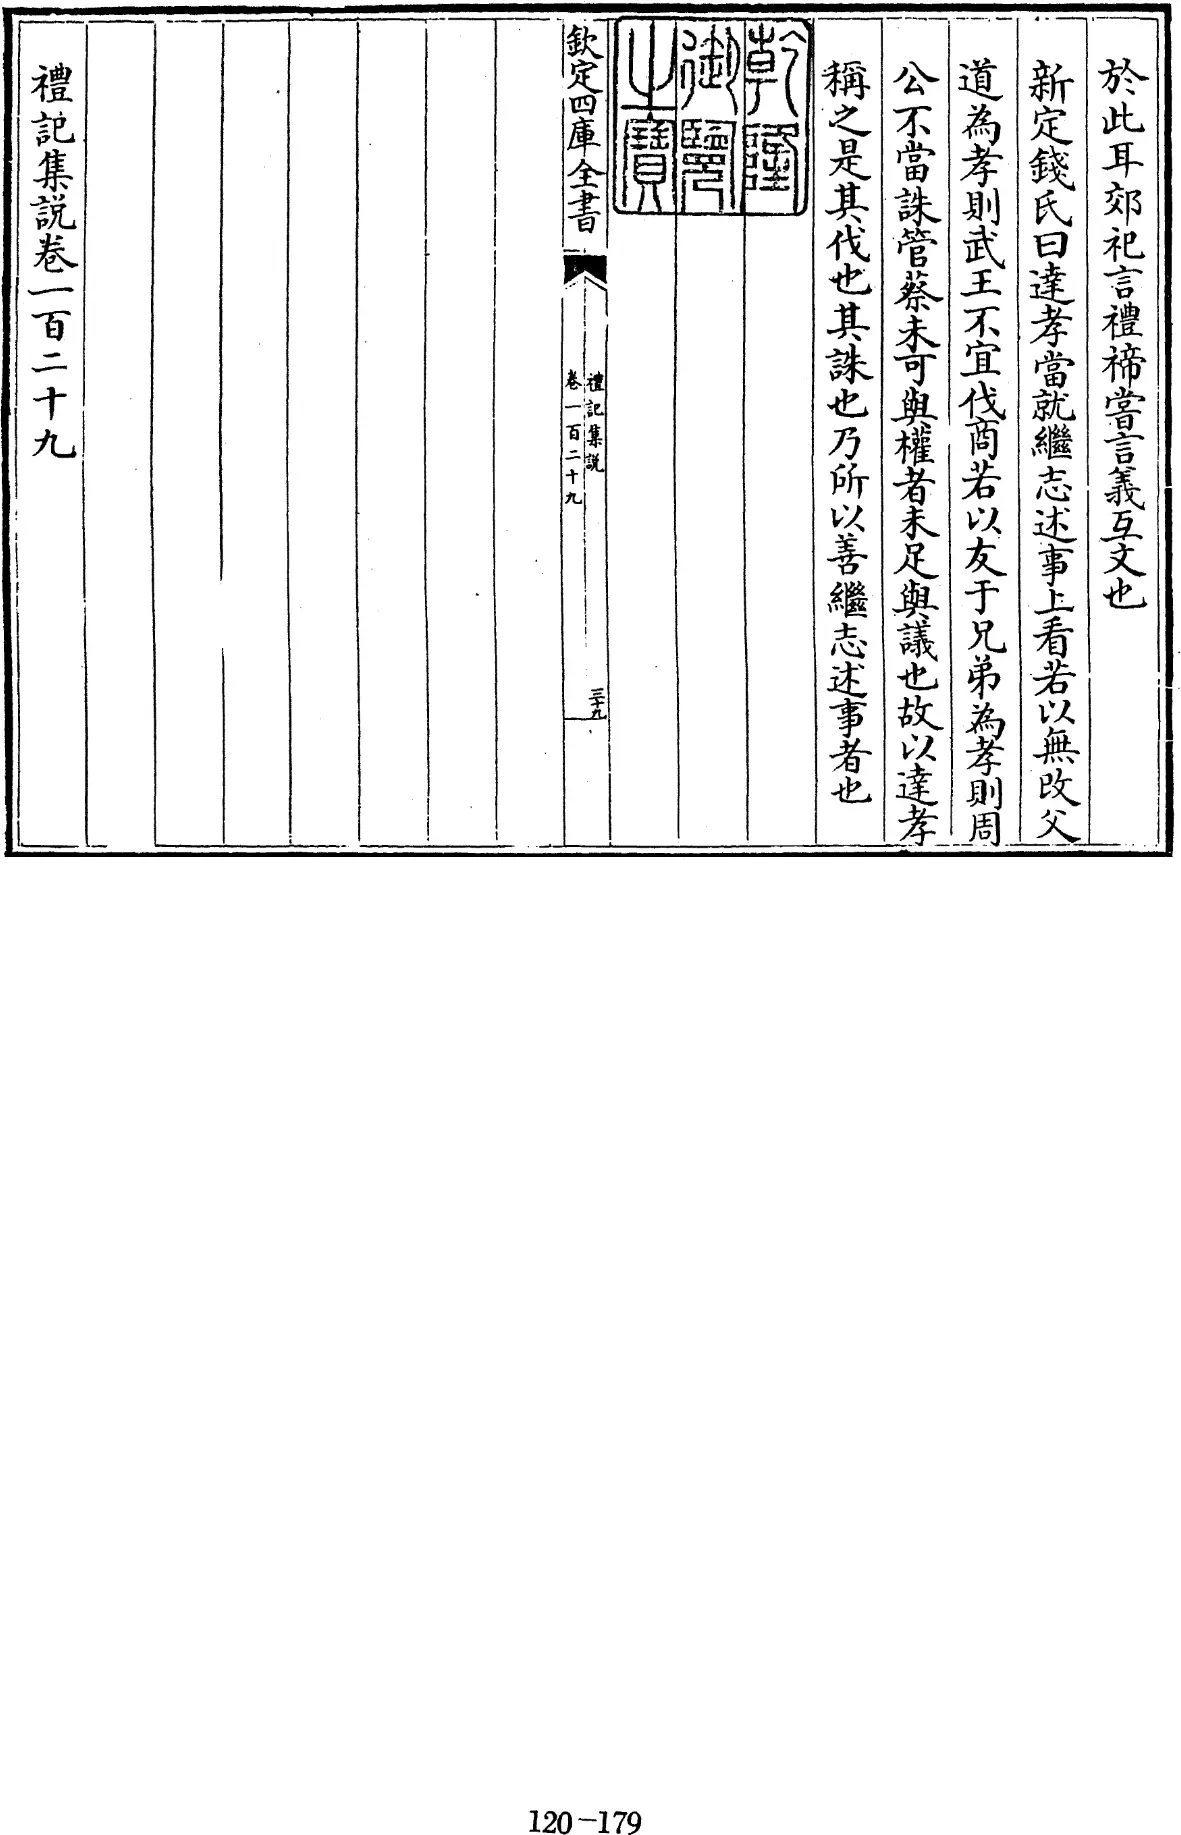 於此耳郊祀言禮禘嘗言義互文也
新定錢氏曰達孝當就繼志述事上看若以無改父
道為孝則武王不宜伐商若以友于兄弟為孝則周
公不當誅管蔡未可與權者未足與議也故以達孝
稱之是其伐也其誅也乃所以善繼志述事者也
乾隆
御覽
之寶
欽定四庫全書
禮記集説
卷一百二十九
三十九
禮記集説卷一百二十九
120-179